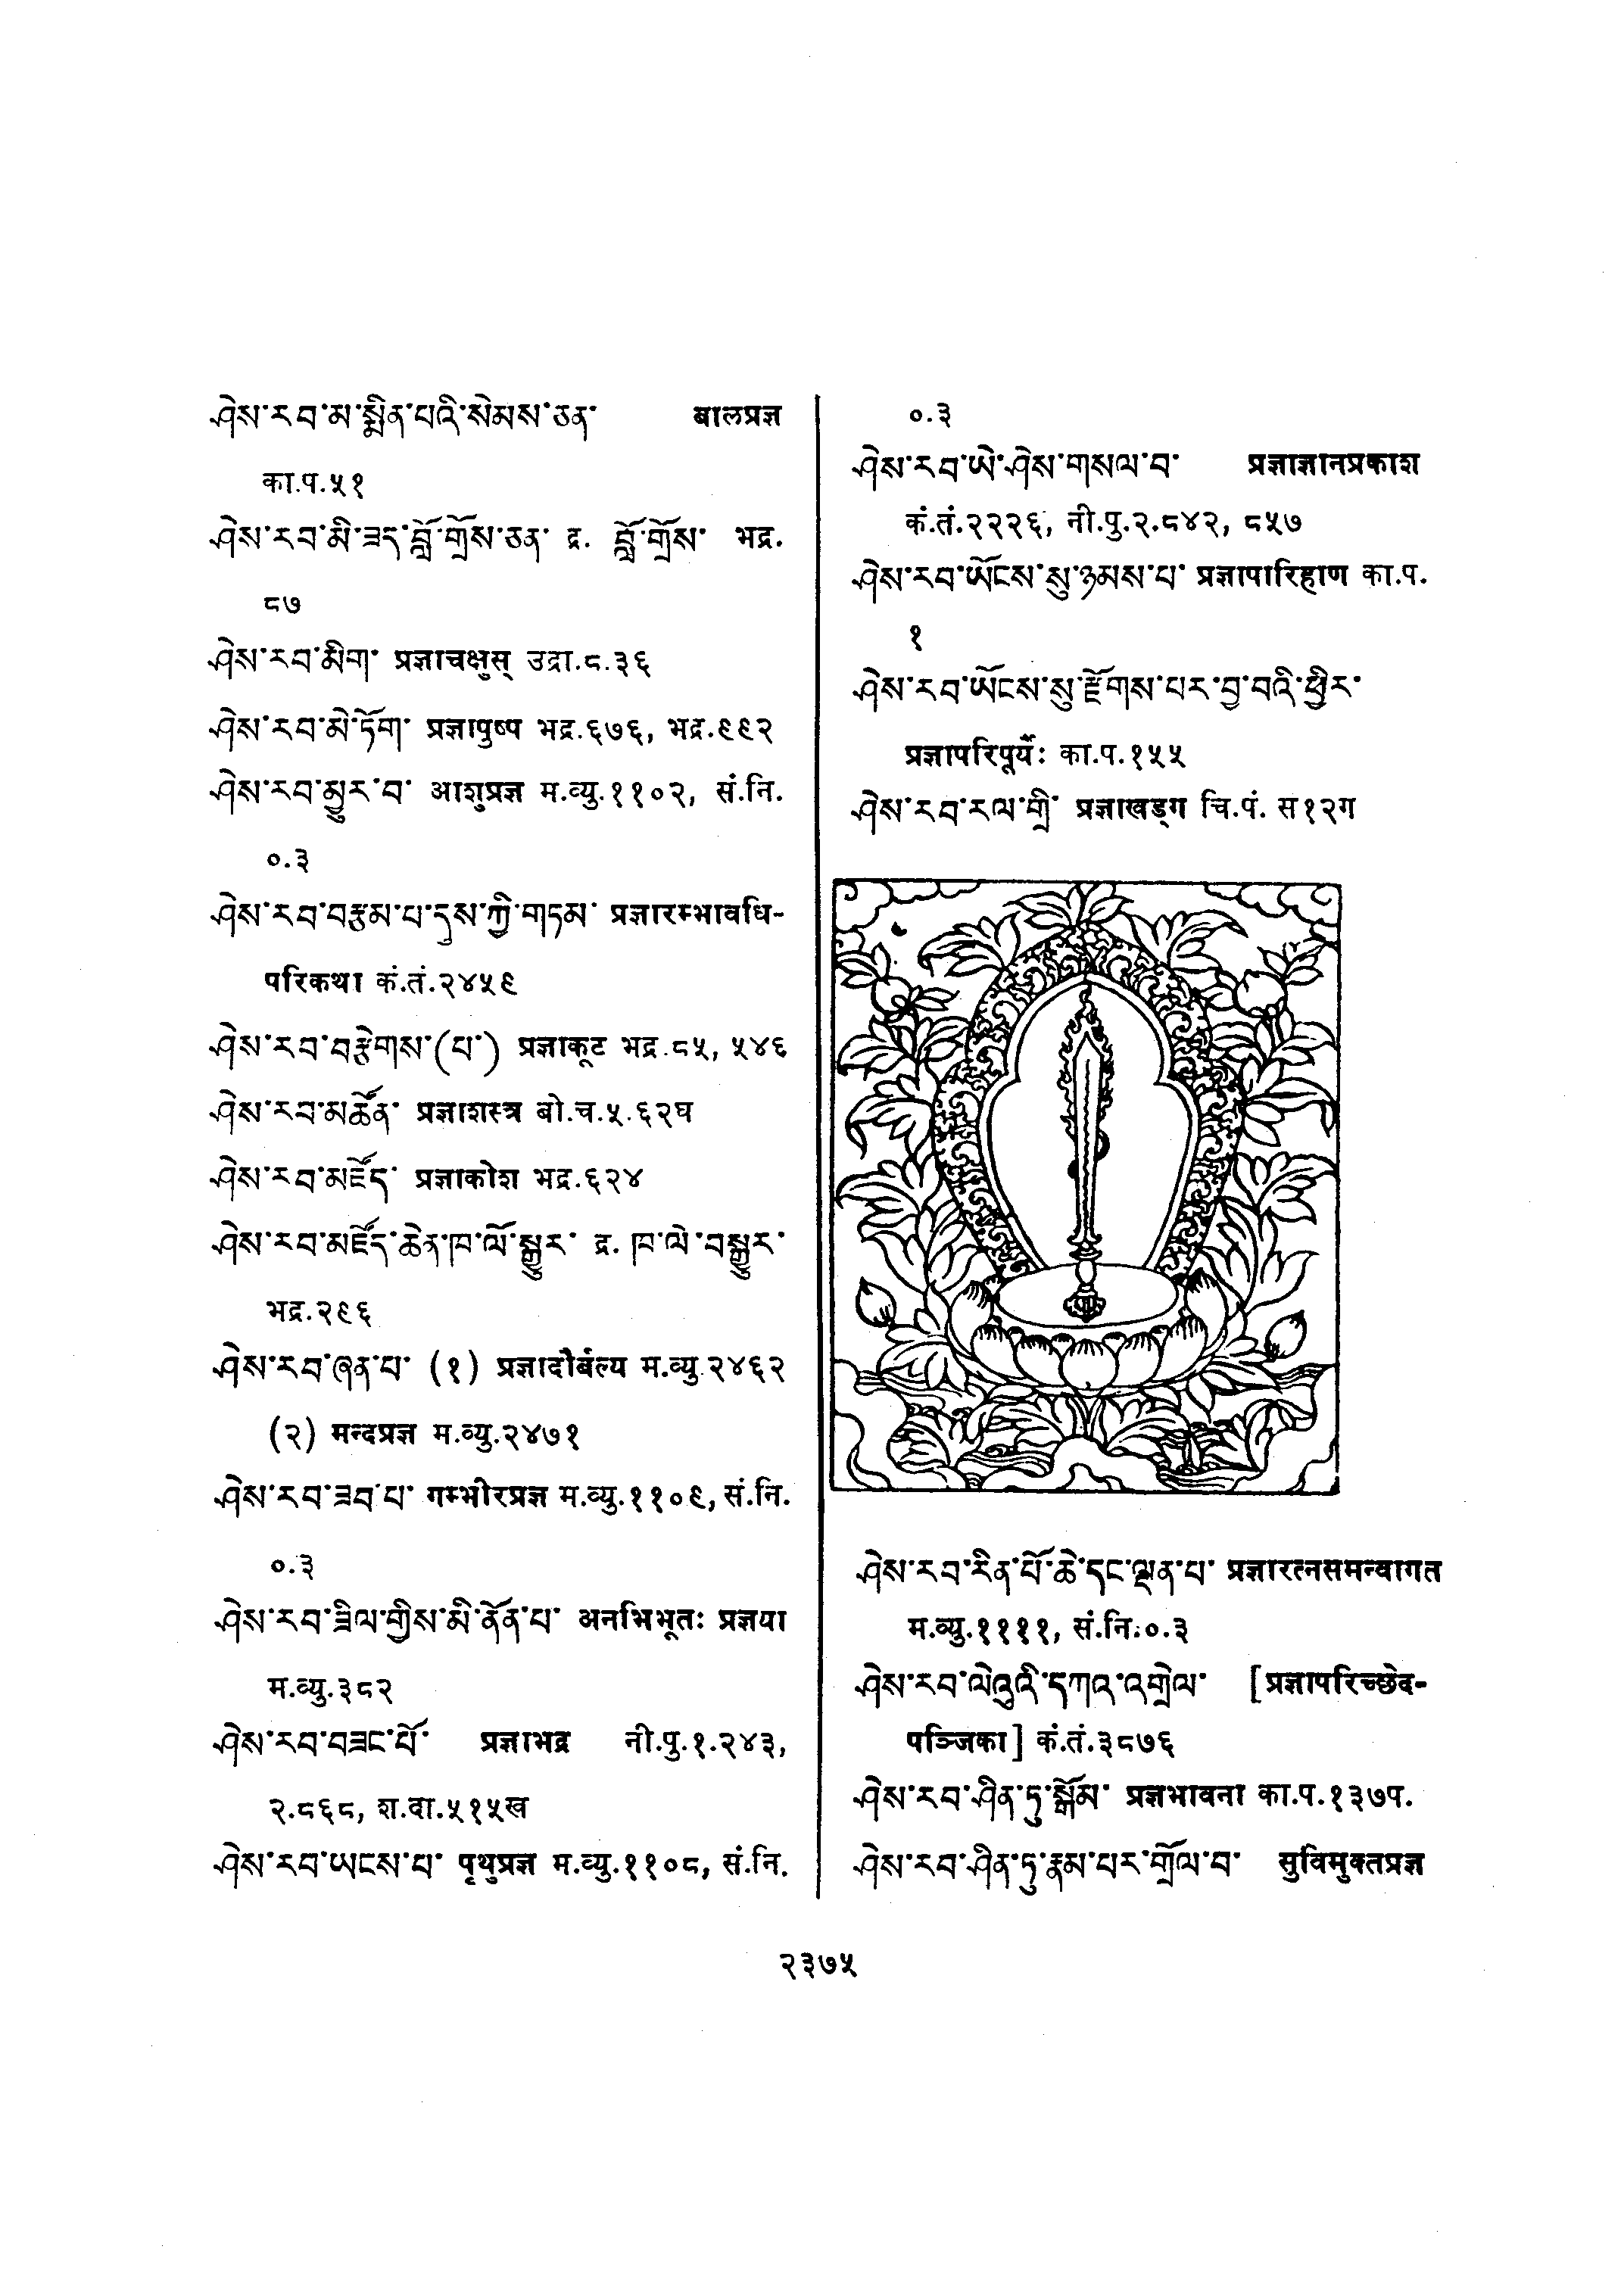 ཤེས་རབ་མ་སྨིན་པའི་སེམས་ཅན་ बालप्रज्ञ
का.प.५१
ཤེས་རབ་མི་ཟད་བློ་གྲོས་ཅན་ द्र. བློ་གྲོས་ भद्र.
८७
ཤེས་རབ་མིག་ प्रज्ञाचक्षुस् उद्रा.८.३६
ཤེས་རབ་མེ་ཏོག་ प्रज्ञापुष्प भद्र.६७६, भद्र.९९२
ཤེས་རབ་མྱུར་བ་ आशुप्रज्ञ म.व्यु.११०२, सं.नि.
०.३
ཤེས་རབ་བརྩམ་པ་དུས་ཀྱི་གཏམ་ प्रज्ञारम्भावधि-
परिकथा कं.तं.२४५९
ཤེས་རབ་བརྩེགས་(པ་) प्रज्ञाकूट भद्र.८५, ५४६
ཤེས་རབ་མཚོན་ प्रज्ञाशस्त्र बो.च.५.६२घ
ཤེས་རབ་མཛོད་ प्रज्ञाकोश भद्र.६२४
ཤེས་རབ་མཛོད་ཆེན་ཁ་ལོ་སྒྱུར་ द्र. ཁ་ལེ་བསྒྱུར་
भद्र.२९६
ཤེས་རབ་ཞན་པ་ (१) प्रज्ञादौर्बल्य म.व्यु.२४६२
(२) मन्दप्रज्ञ म.व्यु.२४७१
ཤེས་རབ་ཟབ་པ་ गम्भीरप्रज्ञ म.व्यु.११०९, सं.नि.
०.३
ཤེས་རབ་ཟིལ་གྱིས་མི་ནོན་པ་ अनभिभूतः प्रज्ञया
म.व्यु.३८२
ཤེས་རབ་བཟང་པོ་ प्रज्ञाभद्र नी.पु.१.२४३,
२.८६८, श.वा.५१५ख
ཤེས་རབ་ཡངས་པ་ पृथुप्रज्ञ म.व्यु.११०८, सं.नि.
०.३
ཤེས་རབ་ཡེ་ཤེས་གསལ་བ་ प्रज्ञाज्ञानप्रकाश
कं.तं.२२२६, नी.पु.२.८४२, ८५७
ཤེས་རབ་ཡོངས་སུ་ཉམས་པ་ प्रज्ञापारिहाण का.प.
१
ཤེས་རབ་ཡོངས་སུ་རྫོགས་པར་བྱ་བའི་ཕྱིར་
प्रज्ञापरिपूर्यैः का.प.१५५
ཤེས་རབ་རལ་གྲི་ प्रज्ञाखड्ग चि.पं. स१२ग
ཤེས་རབ་རིན་པོ་ཆེ་དང་ལྡན་པ་ प्रज्ञारत्नसमन्वागत
म.व्यु.११११, सं.नि.०.३
ཤེས་རབ་ལེའུའི་དཀའ་འགྲེལ་ [प्रज्ञापरिच्छेद-
पञ्जिका] कं.तं.३८७६
ཤེས་རབ་ཤིན་ཏུ་སྒོམ་ प्रज्ञभावना का.प.१३७प.
ཤེས་རབ་ཤིན་ཏུ་རྣམ་པར་གྲོལ་བ་ सुविमुक्तप्रज्ञ
२३७५